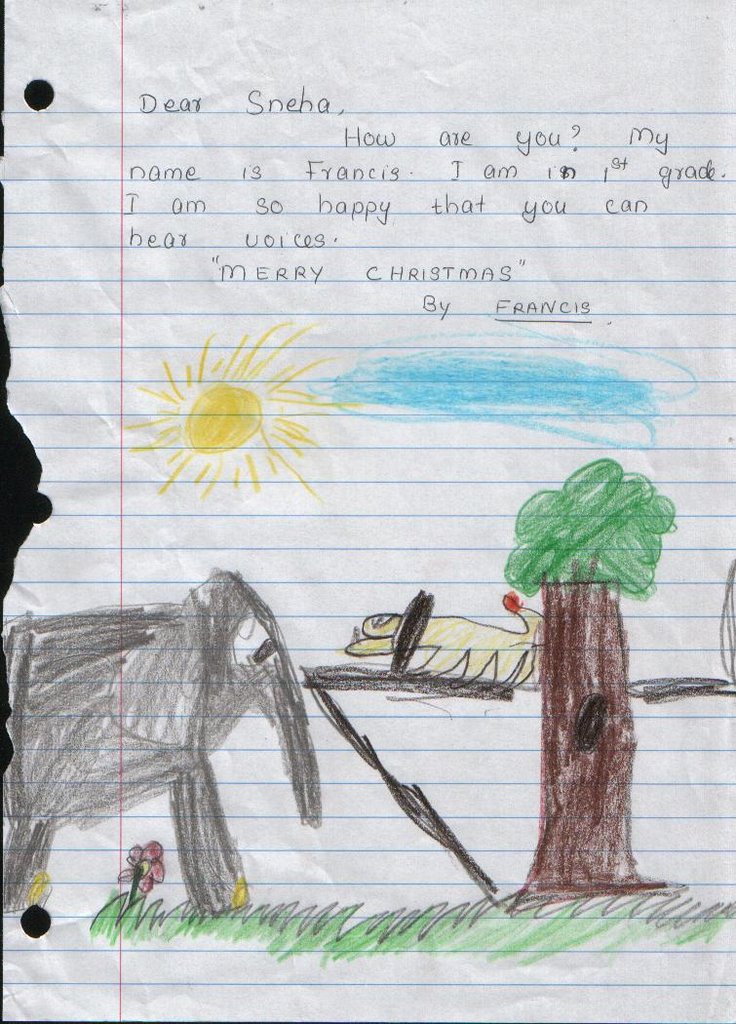 Dear Sneha,
How are you? My
name is Francis. I am in 1st grade.
I am so happy that you can
hear voices.
"MERRY CHRISTMAS"
By FRANCIS.